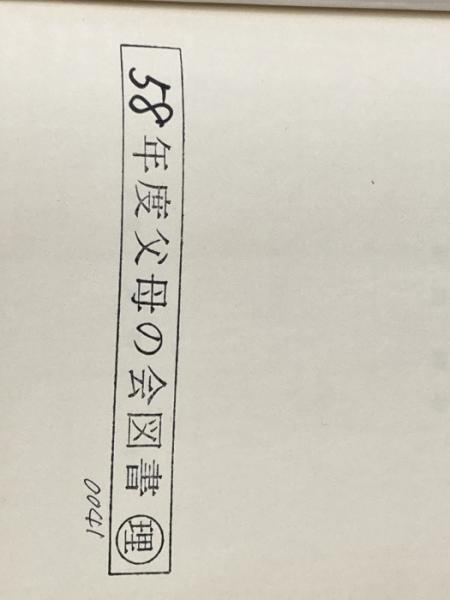 58年度父母の会図書㊣理
0041